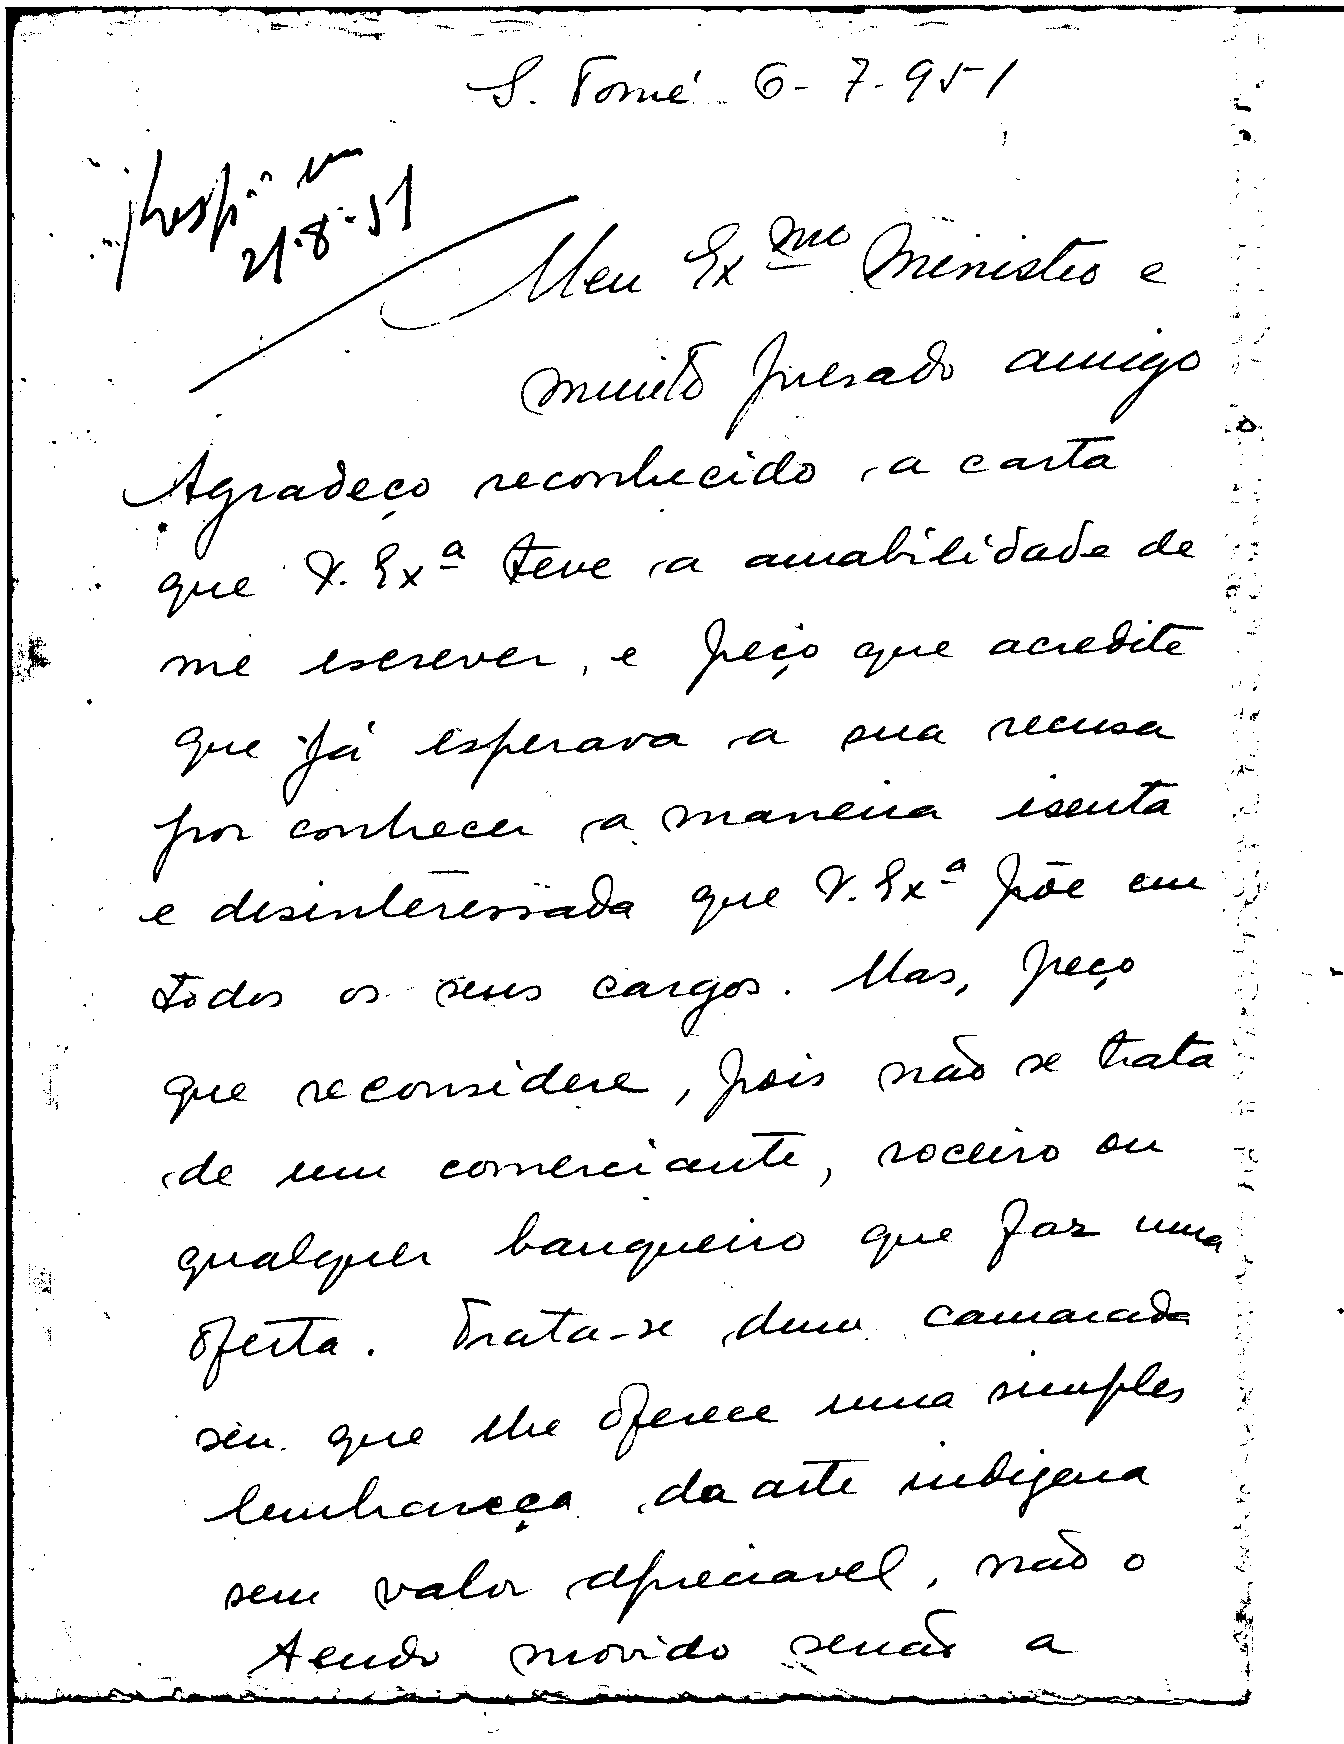 S. Tomé 6-7-951
Resp. em
21-8-51
Meu Exmo Ministro e
muito presado amigo
Agradeço reconhecido a carta
que V. Exª teve a amabilidade de
me escrever, e peço que acredite
que já esperava a sua recusa
por conhecer a maneira isenta
e desinteressada que V. Exª põe em
todos os seus cargos. Mas, peço
que reconsidere, pois não se trata
de um comerciante, roceiro ou
qualquer banqueiro que faz uma
oferta. Trata-se dum camarada
seu que lhe oferece uma simples
lembrança da arte indigena
sem valor apreciavel, não o
tendo movido senão a